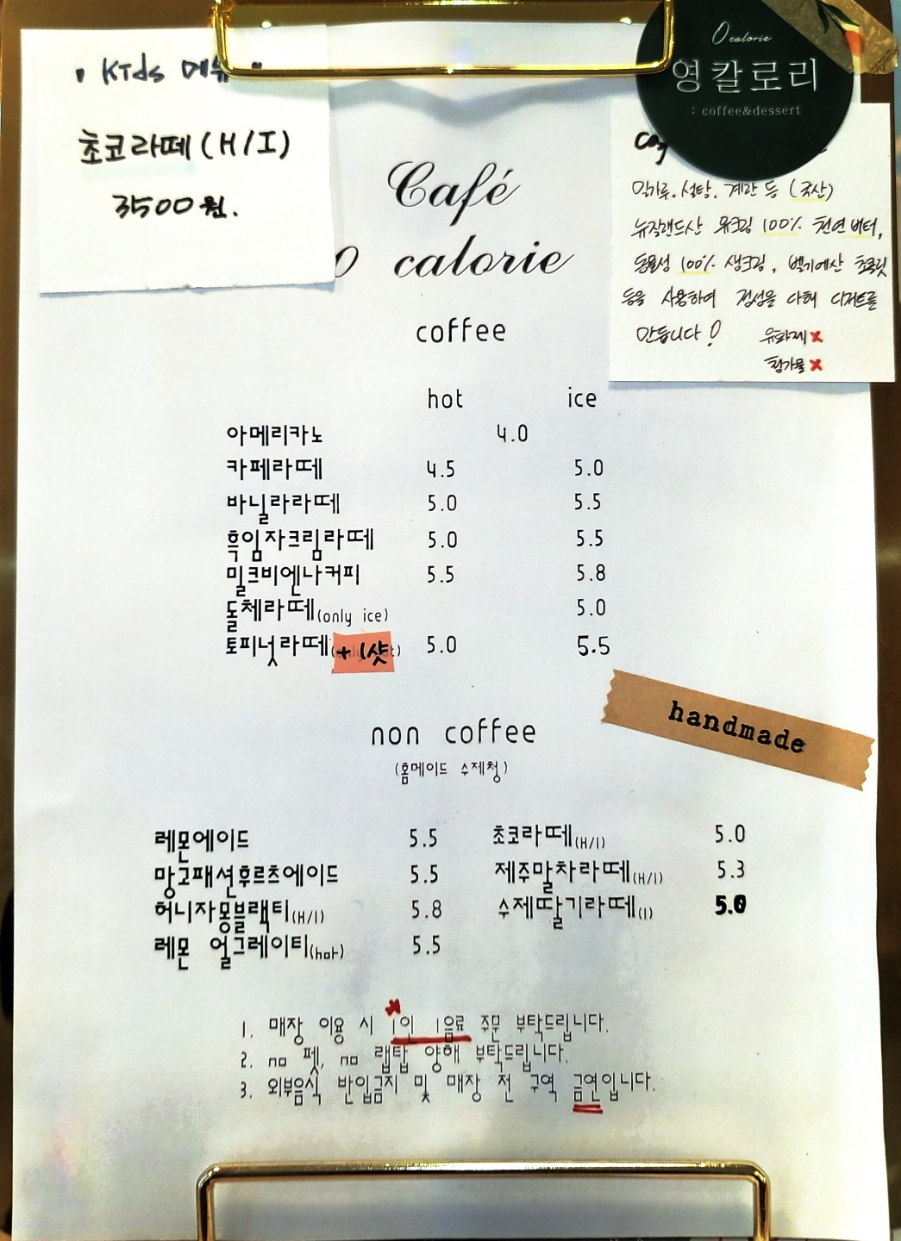 Kids 메뉴
초코라떼(H/I)
3500원.
0 calorie
영칼로리
: coffee&dessert
밀가루, 설탕, 계란 등 (국산)
뉴질랜드산 100% 천연버터,
동물성 100% 생크림, 벨기에산 초콜릿
등을 사용하여 정성을 다해 디저트를
만듭니다!
유화제 x
첨가물 x
Café
0 calorie
coffee
hot ice
아메리카노 4.0
카페라떼 4.5 5.0
바닐라라떼 5.0 5.5
흑임자크림라떼 5.0 5.5
밀크비엔나커피 5.5 5.8
돌체라떼(only ice) 5.0
토피넛라떼 +1샷 5.0 5.5
handmade
non coffee
(홈메이드 수제청)
레몬에이드 5.5 초코라떼(H/I) 5.0
망고패션후르츠에이드 5.5 제주말차라떼(H/I) 5.3
허니자몽블랙티(H/I) 5.8 수제딸기라떼(I) 5.0
레몬 얼그레이티(hot) 5.5
1. 매장 이용 시 1인 1음료 주문 부탁드립니다.
2. no 펫, no 랩탑 양해 부탁드립니다.
3. 외부음식 반입금지 및 매장 전 구역 금연입니다.